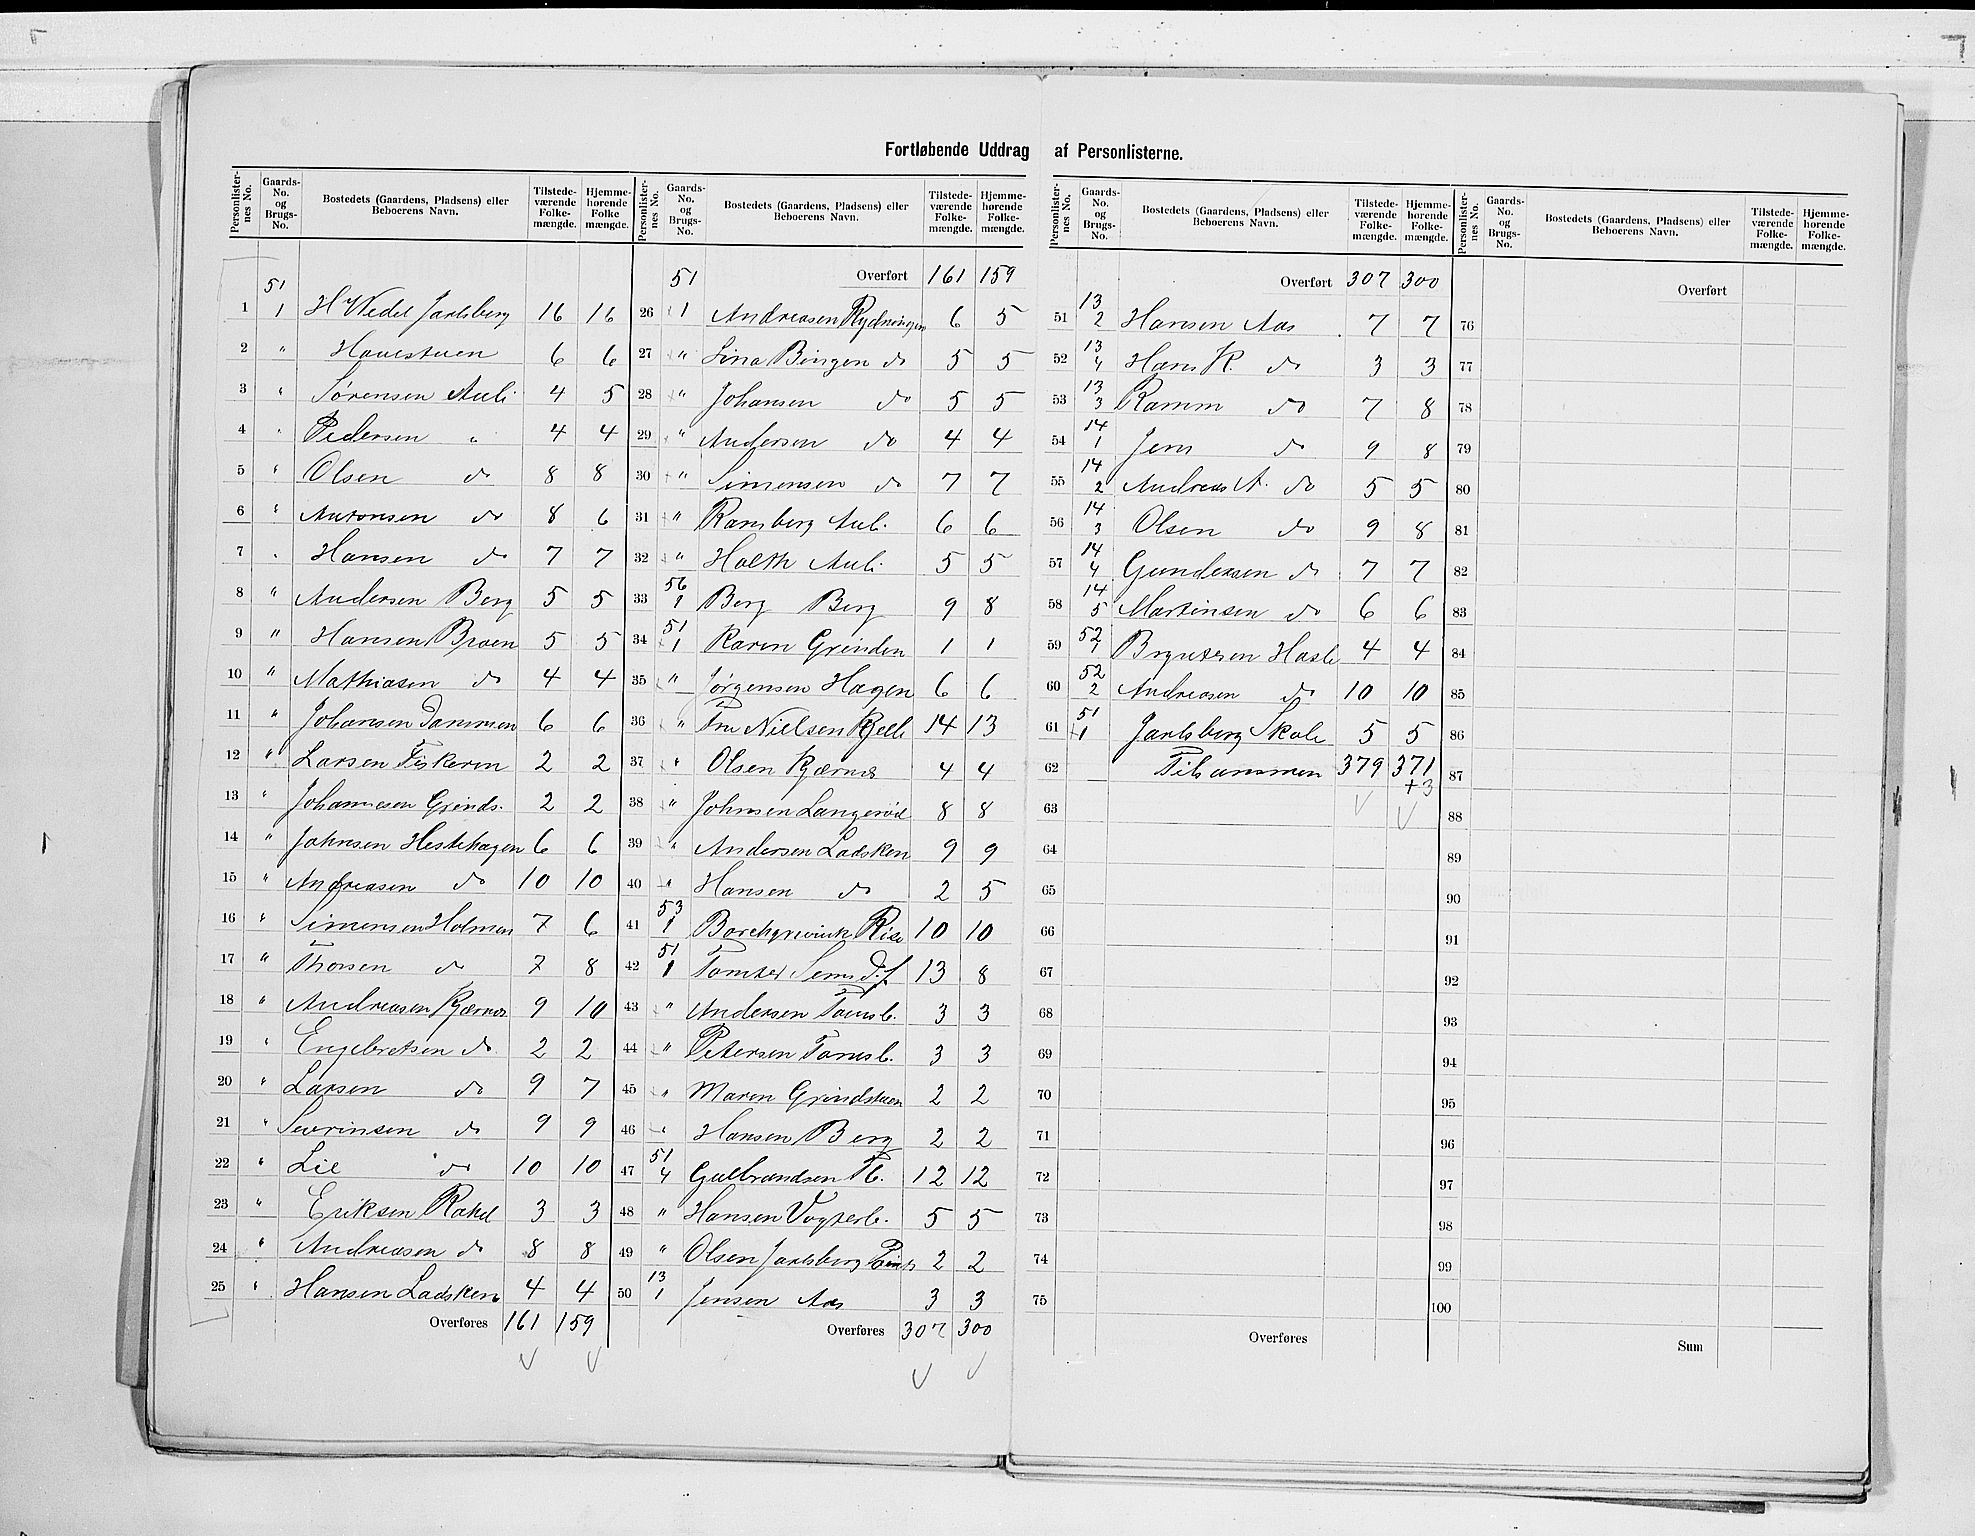 Fortløbende Uddrag af Personlisterne.
Personlisternes No. Gaards-No. og Brugs-No. Bostedets (Gaardens, Pladsens) eller Beboerens Navn. Tilstedeværende Folkemængde. Hjemmehørende Folkemængde.
51
1 1 H Wedel Jarlsberg 16 16
2 " Havestuen 6 6
3 " Sørensen Auli 4 5
4 " Pedersen " 4 4
5 " Olsen do 8 8
6 " Antonsen do 8 6
7 " Hansen do 7 7
8 " Andersen Berg 5 5
9 " Hansen Braen 5 5
10 " Mathiasen do 4 4
11 " Johansen Dammen 6 6
12 " Larsen Fiskeren 2 2
13 " Johannesen Grinds. 2 2
14 " Johnsen Hestehagen 6 6
15 " Andreasen do 10 10
16 " Simensen Holmen 7 6
17 " Thorsen do 7 8
18 " Andreasen Kjærnæs 9 10
19 " Engebretsen do 2 2
20 " Larsen do 9 7
21 " Severinsen do 9 9
22 " Lie do 10 10
23 " Eriksen Rakel 3 3
24 " Andreasen do 8 8
25 " Hansen Ladsken 4 4
Overføres 161 159
Personlisternes No. Gaards-No. og Brugs-No. Bostedets (Gaardens, Pladsens) eller Beboerens Navn. Tilstedeværende Folkemængde. Hjemmehørende Folkemængde.
51 Overført 161 159
26 1 Andreasen Rydningen 6 5
27 " Lina Bingen do 5 5
28 " Johansen do 5 5
29 " Andersen do 4 4
30 " Simensen do 7 7
31 " Ramberg Auli. 6 6
32 " Holth Auli. 5 5
33 56 1 Berg Berg 9 8
34 51 1 Karen Grinden 1 1
35 " Jørgensen Hagen 6 6
36 " Fru Nielsen Kjelle 14 13
37 " Olsen Kjærnæs 4 4
38 " Johnsen Langerød 8 8
39 " Andersen Ladsken 9 9
40 " Hansen do 2 5
41 53 1 Borchgrevink Rise 10 10
42 51 1 Tomter Sems D.f 13 8
43 " Andersen Tomsb. 3 3
44 " Petersen Tomsb. 3 3
45 " Maren Grindstuen 2 2
46 " Hansen Berg 2 2
47 51 4 Gulbrandsen Tb. 12 12
48 " Hansen Vogterb. 5 5
49 " Olsen Jarlsberg 2 2
50 13 1 Jensen Aas 3 3
Overføres 307 300
Personlisternes No. Gaards-No. og Brugs-No. Bostedets (Gaardens, Pladsens) eller Beboerens Navn. Tilstedeværende Folkemængde. Hjemmehørende Folkemængde.
Overført 307 300
51 13 2 Hansen Aas 7 7
52 13 4 Hans K. do 3 3
53 13 3 Ramm do 7 8
54 14 1 Jens do 9 8
55 14 2 Andreas A. do 5 5
56 14 3 Olsen do 9 8
57 14 4 Gundersen do 7 7
58 14 5 Martinsen do 6 6
59 52 1 Bryntesen Hasle 4 4
60 52 2 Andreasen do 10 10
61 51 1 Jarlsberg Skole 5 5
62 Tilsammen 379 371
+3
63
64
65
66
67
68
69
70
71
72
73
74
75
Overføres
Personlisternes No. Gaards-No. og Brugs-No. Bostedets (Gaardens, Pladsens) eller Beboerens Navn. Tilstedeværende Folkemængde. Hjemmehørende Folkemængde.
Overført
76
77
78
79
80
81
82
83
84
85
86
87
88
89
90
91
92
93
94
95
96
97
98
99
100
Sum